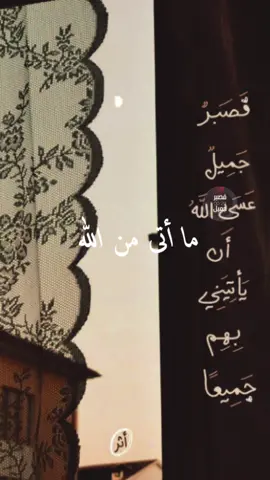 فَصَبْرٌ
جَمِيلٌ
عَسَى اللَّهُ
أَن
يَأْتِيَنِي
بِهِم
جَمِيعًا
ما أتى من الله
أثر